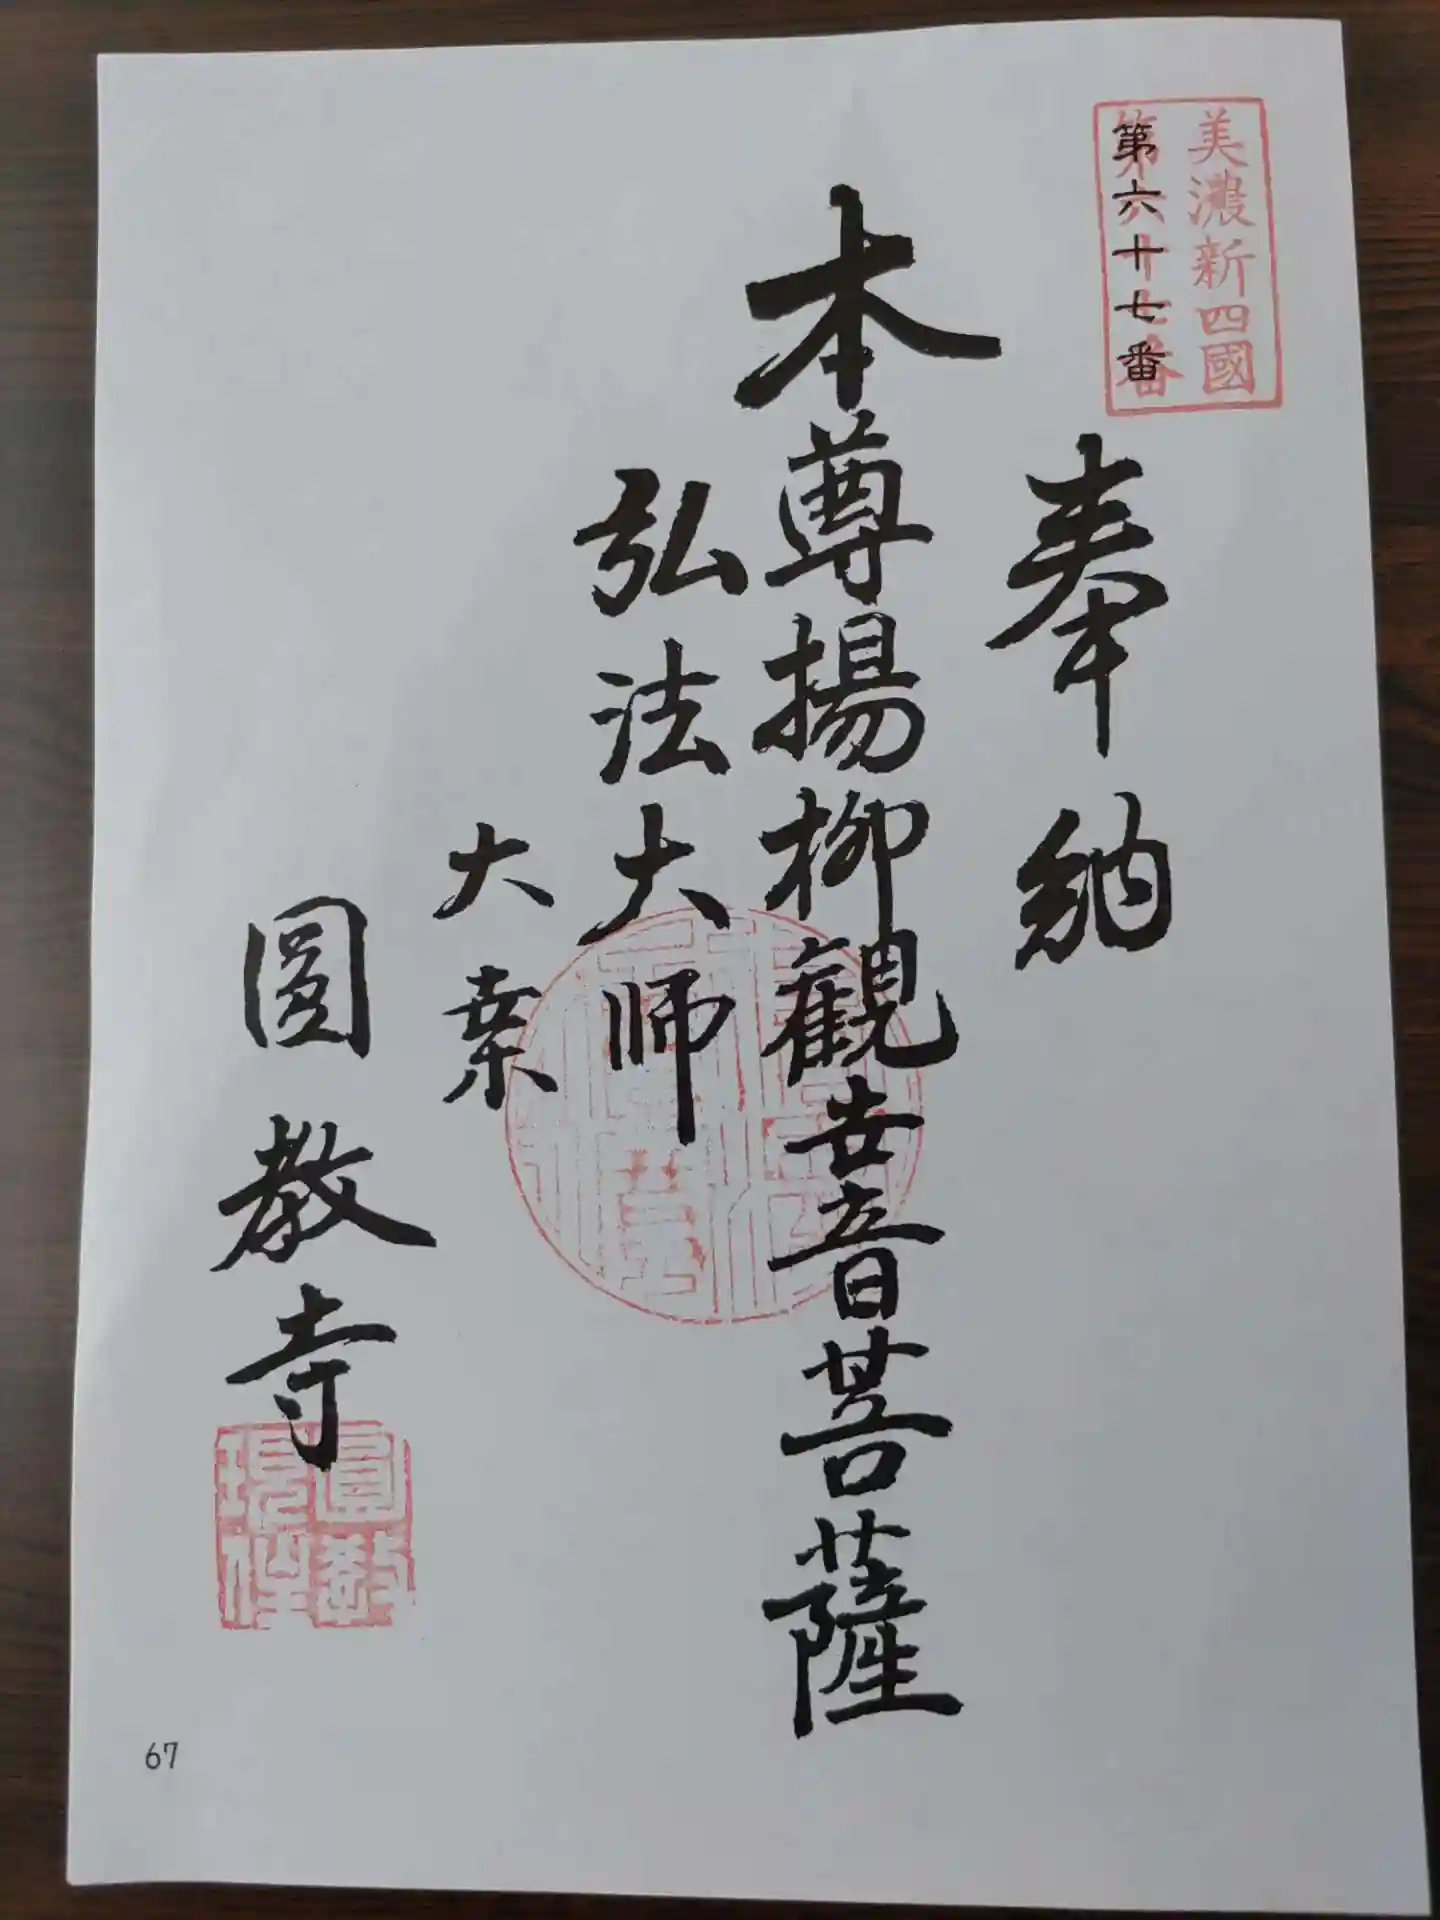 美濃新四國
第六十七番
奉納
本尊揚柳観世音菩薩
弘法大師
大桒
圓教寺
圓教
67